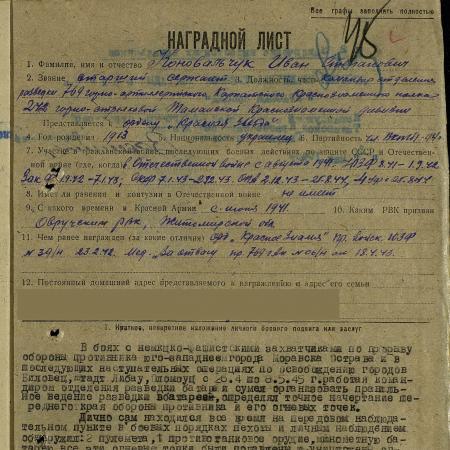 Все графы заполнять полностью
НАГРАДНОЙ ЛИСТ
1. Фамилия, имя и отчество Коновальчук Иван
2. Звание старший сержант 3. Должность, часть командир отделения
разведки 789 горно-артиллерийского Краснознаменного полка
242 горно-стрелковой Таманской Краснознаменной дивизии
Представляется к ордену „Красная Звезда“
4. Год рождения 1913 5. Национальность украинец 6. Партийность
7. Участие в гражданской войне, последующих боевых действиях по защите СССР и Отечествен-
ной войне (где, когда) Отечественной войне с августа 1941
8. Имеет ли ранения и контузии в Отечественной войне не имеет
9. С какого времени в Красной Армии с июня 1941 10. Каким РВК призван
Овручским РВК, Житомирской обл
11. Чем ранее награжден (за какие отличия) орд „Красное Знамя“ пр. войск. ЮЗФ
23.2.42. Мед. „За отвагу
12. Постоянный домашний адрес представляемого к награждению и адрес его семьи
I. Краткое, конкретное изложение личного боевого подвига или заслуг
В боях с немецко-фашистскими захватчиками по прорыву
обороны противника юго-западнее города Моравска Острава и в
последующих наступательных операциях по освобождению городов
Биловец, Штадт Либау, Оломоуц с 26.4 по 8.5.45 г работая коман-
диром отделения разведки батареи сумел организовать правиль-
ное ведение разведки в батарее, определял точное начертание пе-
реднего края обороны противника и его огневых точек.
Лично сам находился все время на передовом наблюда-
тельном пункте в боевых порядках пехоты и личным наблюдением
обнаружил: 2 пулемета, 1 противотанковое орудие, минометную ба-